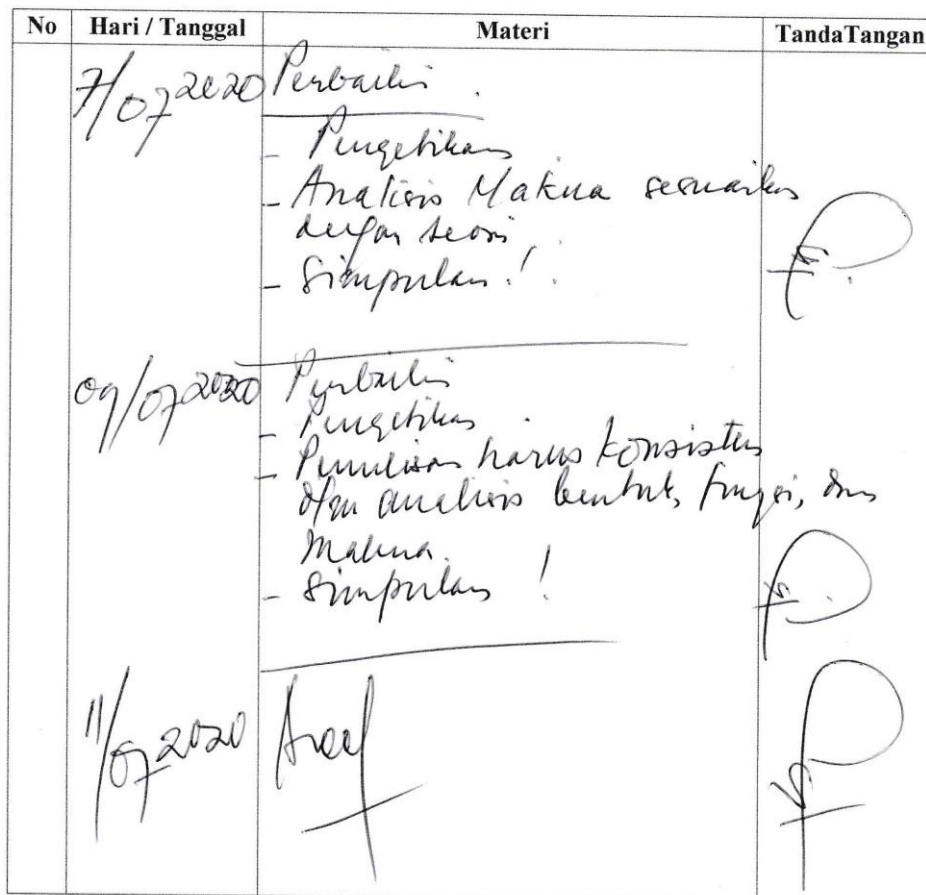 No Hari / Tanggal Materi TandaTangan
7/07 2020 Perbaiki .
- Pengetikan
- Analisis Makna sesuaikan
dengan teori
- Simpulan ! .
09/07 2020 Perbaiki
- Pengetikan .
- Penulisan harus konsisten
dgn analisis bentuk, fungsi, dan
makna.
- Simpulan !
11/07 2020